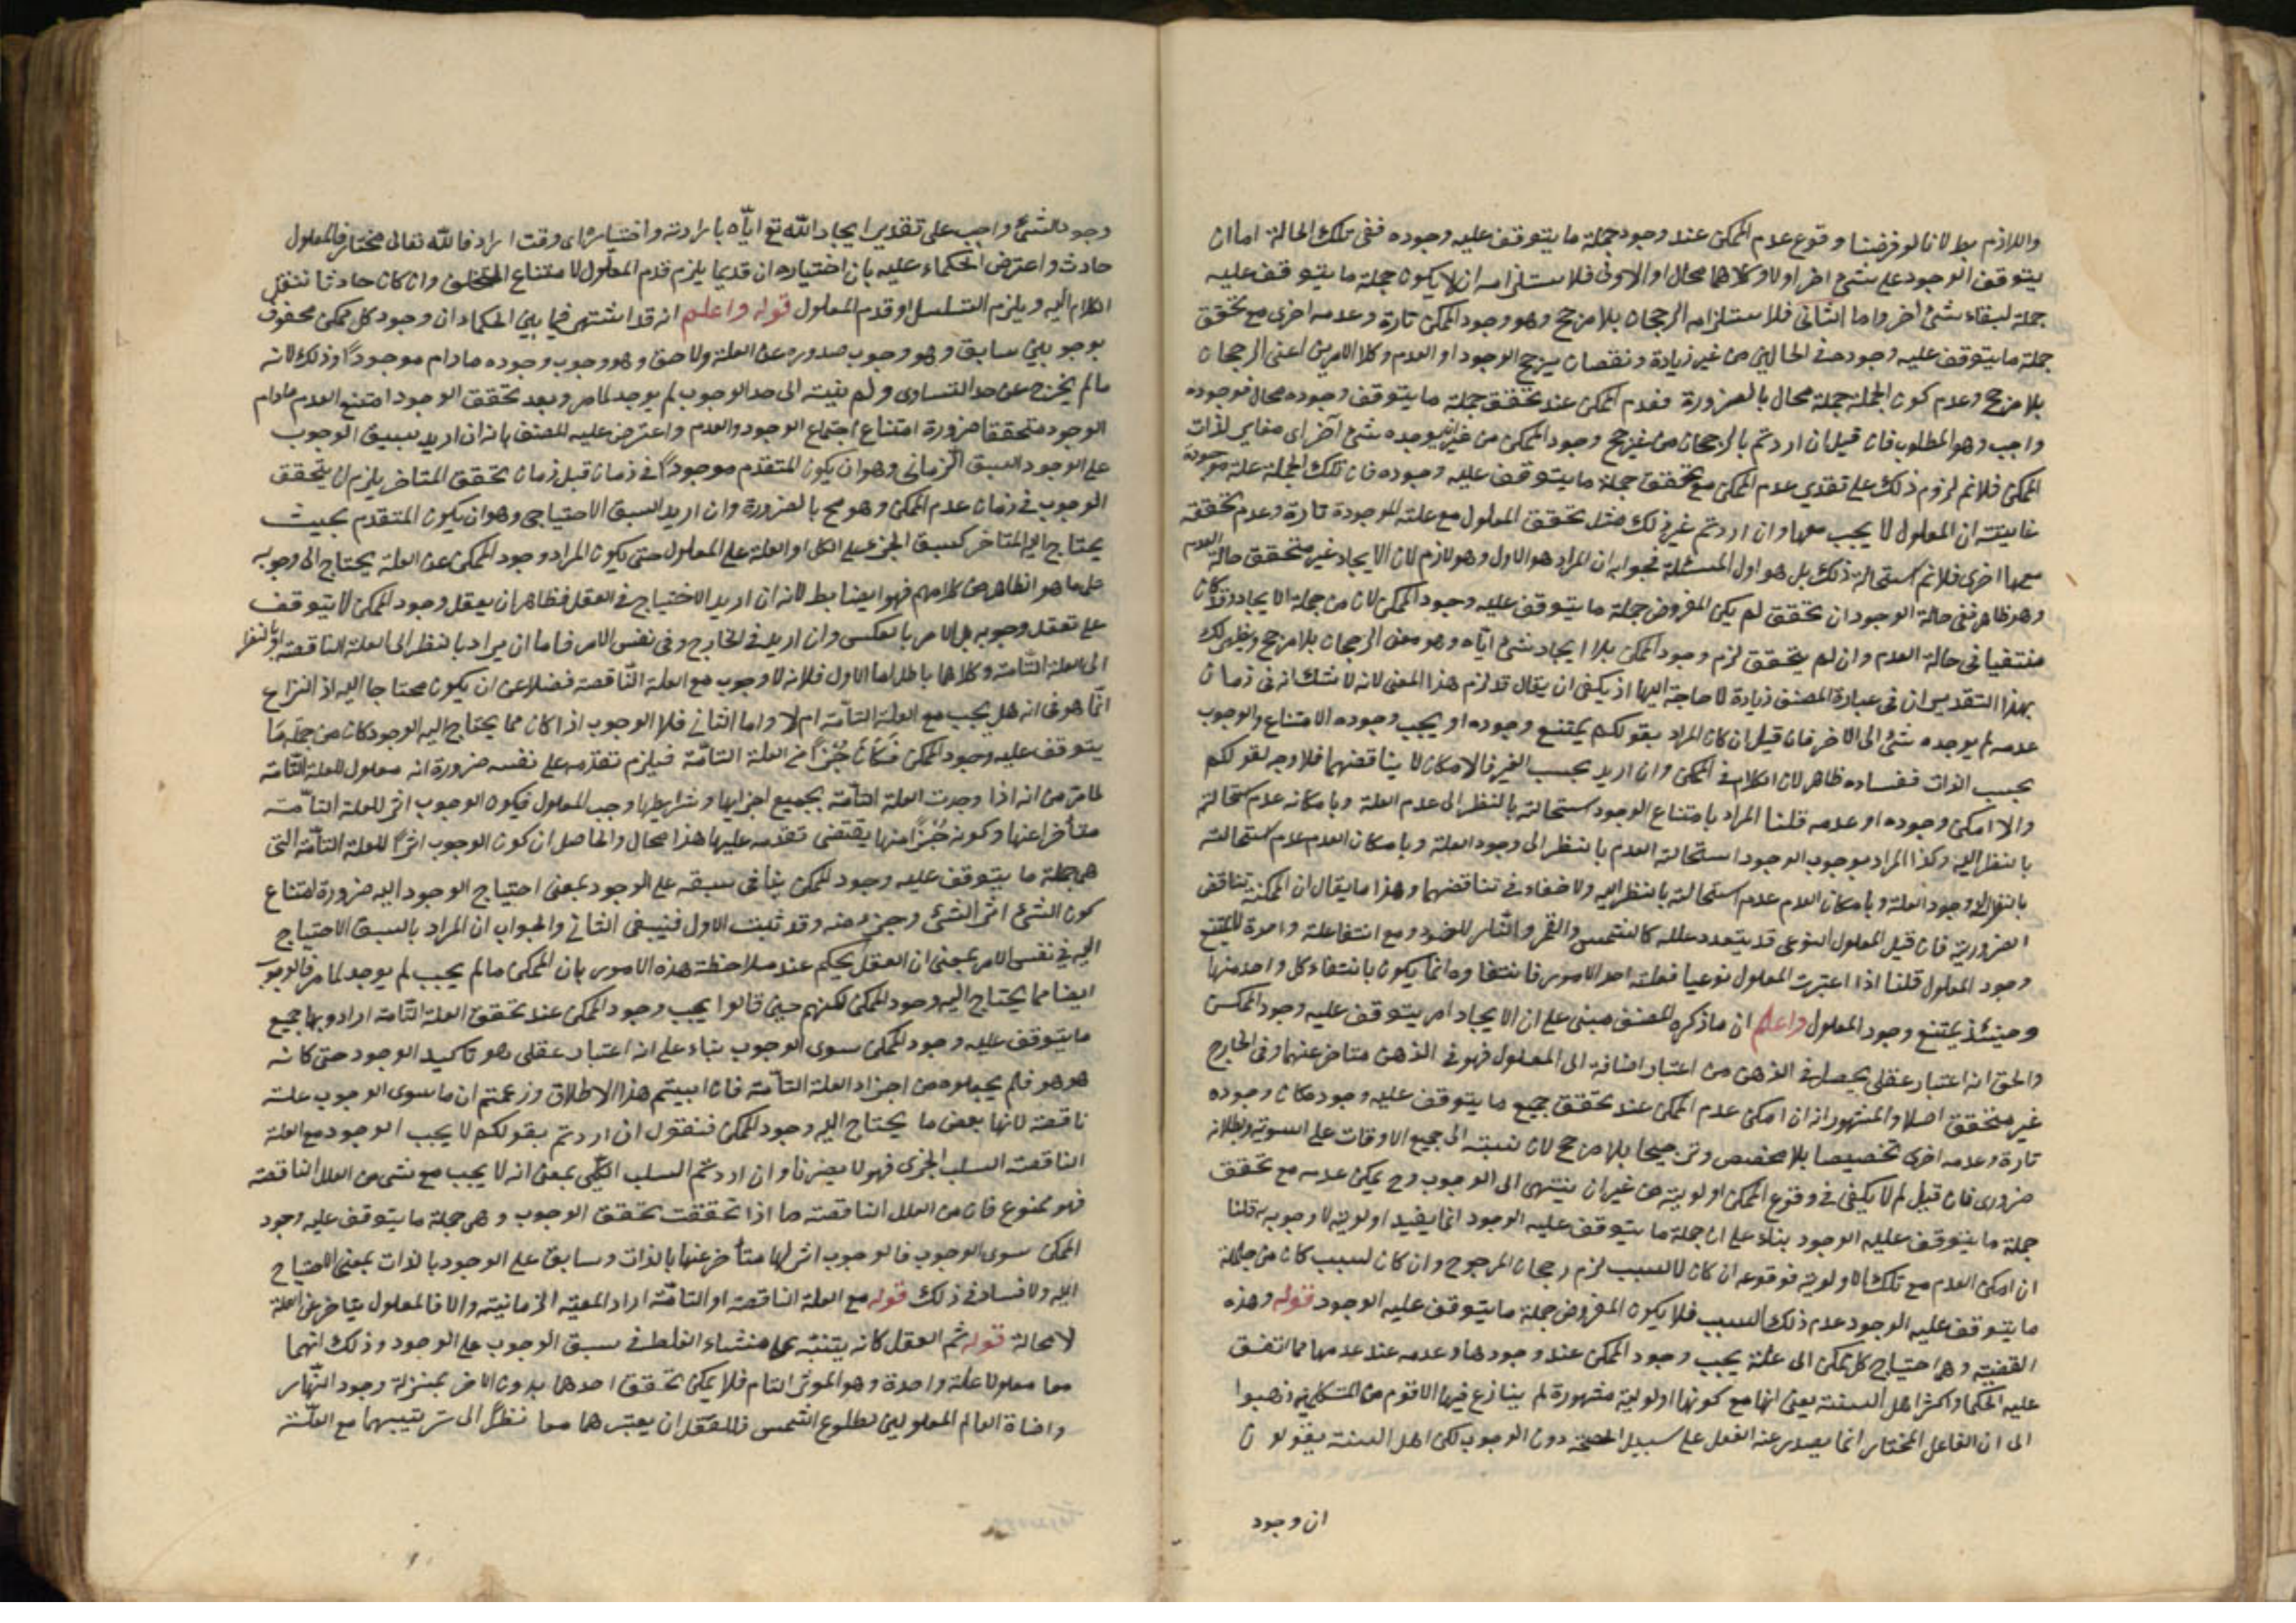 واللازم بط لانا لو فرضنا وقوع عدم الممكن عند وجود جملة ما يتوقف عليه وجوده ففى تلك الحالة اما ان
يتوقف الوجود على شئ اخر اولا وكلاهما محال اما الاول فلاستلزامه ان لا يكون جملة ما يتوقف عليه
جملة لبقاء شئ اخر واما الثانى فلاستلزامه الرجحان بلا مرجح وهو وجود الممكن تارة وعدمه اخرى مع تحقق
جملة ما يتوقف عليه وجوده فى الحالين من غير زيادة ونقصان يرجح الوجود او العدم وكلا الامرين اعنى الرجحان
بلا مرجح وعدم كون الجملة جملة محال بالضرورة فعدم الممكن عند تحقق جملة ما يتوقف وجوده محال فوجوده
واجب وهو المطلوب فان قيل ان اردتم بالرجحان من غير مرجح وجود الممكن من غير ان يوجده شئ آخر اى مغاير لذات
الممكن فلانم لزوم ذلك على تقدير عدم الممكن مع تحقق جملة ما يتوقف عليه وجوده فان تلك الجملة علة موجودة
غايته ان المعلول لا يجب معها وان اردتم غير ذلك مثل تحقق المعلول مع علته الموجودة تارة وعدم تحققه
معها اخرى فلانم استحالة ذلك بل هو اول المسئلة فجوابه ان المراد هو الاول وهو لازم لان الايجاد غير متحقق حالة العدم
وهو ظاهر ففى حالة الوجود ان تحقق لم يكن المفروض جملة ما يتوقف عليه وجود الممكن لان من جملة الايجاد وقد كان
منتفيا فى حالة العدم وان لم يتحقق لزم وجود الممكن بلا ايجاد شئ اياه وهو معنى الرجحان بلا مرجح ويظهر لك
بهذا التقدير ان فى عبارة المصنف زيادة لا حاجة اليها اذ يكفى ان يقال قد لزم هذا المعنى لانه لا شك انه فى زمان
عدمه لم يوجده شئ الى الاخر فان قيل ان كان المراد بقولكم يمتنع وجوده او يجب وجوده الامتناع والوجوب
بحسب الذات ففساده ظاهر لان الكلام فى الممكن وان اريد بحسب الغير فالامكان لا يناقضهما فلا وجه لقولكم
والا امكن وجوده او عدمه قلنا المراد بامتناع الوجود استحالته بالنظر الى عدم العلة وبامكانه عدم استحالته
بالنظر اليه وكذا المراد بوجوب الوجود استحالة العدم بالنظر الى وجود العلة وبامكان العدم عدم استحالته
بالنظر الى وجود العلة وبامكان العدم عدم استحالته بالنظر اليه ولا خفاء فى تناقضهما وهذا ما يقال ان الممكنة تناقض
الضرورية فان قيل المعلول النوعى قد يتعدد علله كالشمس والقمر والنار للضوء ومع انتفا علة واحدة لا يمتنع
وجود المعلول قلنا اذا اعتبرت المعلول نوعيا فعلته احد الامور فانتفاوه انما يكون بانتفاء كل واحد منها
وحينئذ يمتنع وجود المعلول واعلم ان ما ذكره المصنف مبنى على ان الايجاد امر يتوقف عليه وجود الممكن
والحق انه اعتبار عقلى يحصل فى الذهن من اعتبار اضافة الى المعلول فهو فى الذهن متاخر عنهما وفى الخارج
غير متحقق اصلا والمشهور انه ان امكن عدم الممكن عند تحقق جميع ما يتوقف عليه وجوده كان وجوده
تارة وعدمه اخرى تخصيصا بلا مخصص وترجيحا بلا مرجح لان نسبته الى جميع الاوقات على السوية وبطلانه
ضرورى فان قيل لم لا يكفى فى وقوع الممكن اولوية من غير ان ينتهى الى الوجوب وح يمكن عدمه مع تحقق
جملة ما يتوقف عليه الوجود بناء على ان جملة ما يتوقف عليه الوجود انما يفيد اولويته لا وجوبه قلنا
ان امكن العدم مع تلك الاولوية فوقوعه ان كان لا لسبب لزم رجحان المرجوح وان كان لسبب كان من جملة
ما يتوقف عليه الوجود عدم ذلك السبب فلا يكون المفروض جملة ما يتوقف عليه الوجود قوله وهذه
القضية وهى احتياج كل ممكن الى علة يجب وجود الممكن عند وجودها وعدمه عند عدمها مما اتفق
عليه الحكما واكثر اهل السنة يعنى انها مع كونها اولوية مشهورة لم ينازع فيها الا قوم من المتكلمين ذهبوا
الى ان الفاعل المختار انما يصدر عنه الفعل على سبيل الصحة دون الوجوب لكن اهل السنة يقولون
ان وجود
وجود الشئ واجب على تقدير ايجاد الله تع اياه بارادته واختياره اى وقت اراد فالله تعالى مختار فالمعلول
حادث واعترض الحكماء عليه بان اختياره ان قديما يلزم قدم المعلول لامتناع التخلف وان كان حادثا ننقل
الكلام اليه ويلزم التسلسل او قدم المعلول قوله واعلم انه قد اشتهر فيما بين الحكماء ان وجود كل ممكن محفوف
بوجوبين سابق وهو وجوب صدوره عن العلة ولاحق وهو وجوب وجوده مادام موجودا وذلك لانه
ما لم يخرج عن حد التساوى ولم ينته الى حد الوجوب لم يوجد لما مر وبعد تحقق الوجود امتنع العدم مادام
الوجود متحققا ضرورة امتناع اجتماع الوجود والعدم واعترض عليه المصنف بانه ان اريد بسبق الوجوب
على الوجود السبق الزمانى وهو ان يكون المتقدم موجودا فى زمان قبل زمان تحقق المتاخر يلزم ان يتحقق
الوجوب فى زمان عدم الممكن وهو مح بالضرورة وان اريد السبق الاحتياجى وهو ان يكون المتقدم بحيث
يحتاج اليه المتاخر كسبق الجزء على الكل او العلة على المعلول حتى يكون المراد وجود الممكن عن العلة يحتاج الى وجوبه
على ما هو الظاهر من كلامهم فهو ايضا بط لانه ان اريد الاحتياج فى العقل فظاهر ان يعقل وجود الممكن لا يتوقف
على تعقل وجوبه بل الامر بالعكس وان اريد فى الخارج وفى نفس الامر فاما ان يراد بالنظر الى العلة الناقصة او بالنظر
الى العلة التامة وكلاهما باطل اما الاول فلانه لا وجوب مع العلة الناقصة فضلا عن ان يكون محتاجا اليه اذ النزاع
انما هو فى انه هل يجب مع العلة التامة ام لا واما الثانى فلا الوجوب اذا كان مما يحتاج اليه الوجود كان من جملة ما
يتوقف عليه وجود الممكن فكان جزأ من العلة التامة فيلزم تقدمه على نفسه ضرورة انه معلول للعلة التامة
لما مر من انه اذا وجدت العلة التامة بجميع اجزايها وشرايطها وجب المعلول فيكون الوجوب اثر للعلة التامة
متأخرا عنها وكونه جزأ منها يقتضى تقدمه عليها هذا محال والحاصل ان كون الوجوب اثرا للعلة التامة التى
هى جملة ما يتوقف عليه وجود الممكن ينافى سبقه على الوجود بمعنى احتياج الوجود اليه ضرورة امتناع
كون الشئ اثر الشئ وجزءه وقد ثبت الاول فينبغى الثانى والجواب ان المراد بالسبق الاحتياج
اليه فى نفس الامر بمعنى ان العقل يحكم عند ملاحظة هذه الامور بان الممكن ما لم يجب لم يوجد لما مر فالوجوب
ايضا مما يحتاج اليه وجود الممكن لكنهم حين قالوا يجب وجود الممكن عند تحقق العلة التامة ارادو بها جميع
ما يتوقف عليه وجود الممكن سوى الوجوب بناء على انه اعتبار عقلى هو تاكيد الوجود حتى كانه
هو هو فلم يجعلوه من اجزاء العلة التامة فان ابيتم هذا الاطلاق وزعمتم ان ما سوى الوجوب علة
ناقصة لانها بعض ما يحتاج اليه وجود الممكن فنقول ان اردتم بقولكم لا يجب الوجود مع العلة
الناقصة السلب الجزى فهو لا يضرنا وان اردتم السلب الكلى بمعنى انه لا يجب مع شى من العلل الناقصة
فهو ممنوع فان من العلل الناقصة ما اذا تحققت تحقق الوجوب وهى جملة ما يتوقف عليه وجود
الممكن سوى الوجوب فالوجوب اثر لها متأخر عنها بالذات وسابق على الوجود بالذات بمعنى الاحتياج
اليه ولا فساد فى ذلك قوله مع العلة الناقصة او التامة اراد المعية الزمانية والا فالمعلول يتاخر عن العلة
لا محالة قوله ثم العقل كانه يتنبه على منشاء الغلط فى سبق الوجوب على الوجود وذلك انهما
معا معلولا علة واحدة وهو الموثر التام فلا يمكن تحقق احدهما بدون الاخر بمنزلة وجود النهار
واضاة العالم المعلولين لطلوع الشمس فللعقل ان يعتبرهما معا نظرا الى ترتيبهما مع العلة